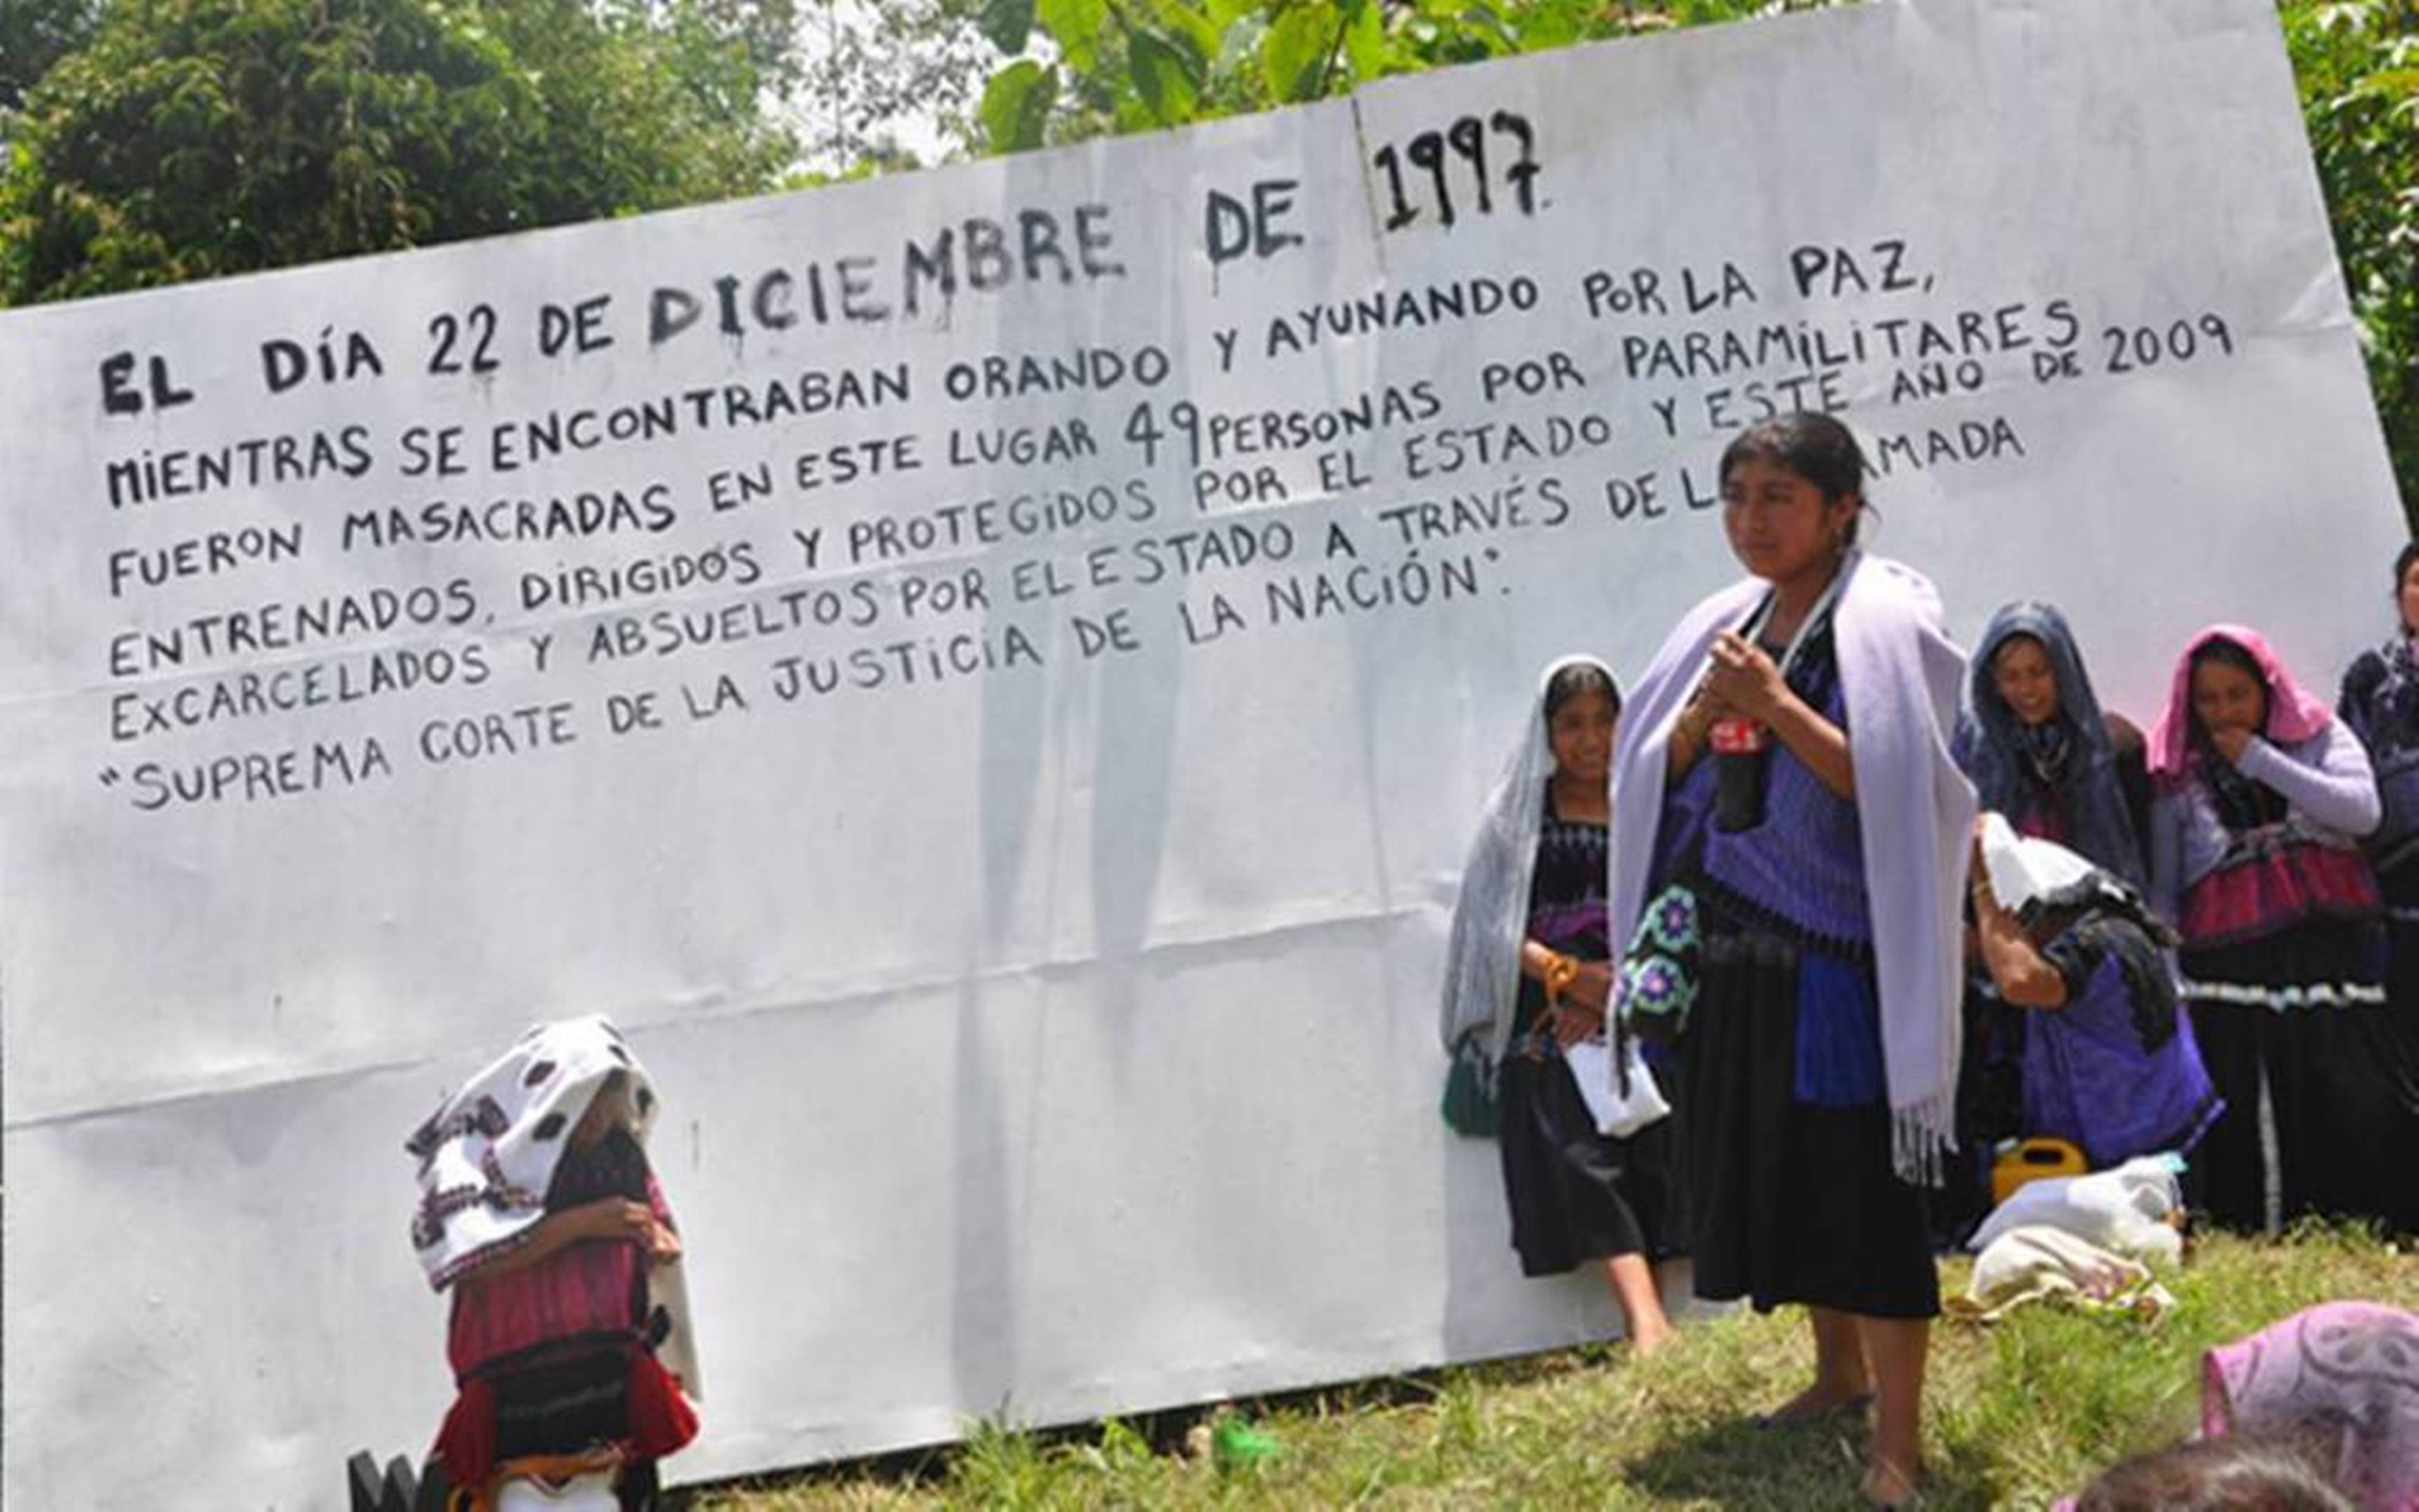 EL DÍA 22 DE DICIEMBRE DE 1997
MIENTRAS SE ENCONTRABAN ORANDO Y AYUNANDO POR LA PAZ,
FUERON MASACRADAS EN ESTE LUGAR 49 PERSONAS POR PARAMILITARES
ENTRENADOS, DIRIGIDOS Y PROTEGIDOS POR EL ESTADO Y ESTE AÑO DE 2009
EXCARCELADOS Y ABSUELTOS POR EL ESTADO A TRAVÉS DE L AMADA
"SUPREMA CORTE DE LA JUSTICIA DE LA NACIÓN".